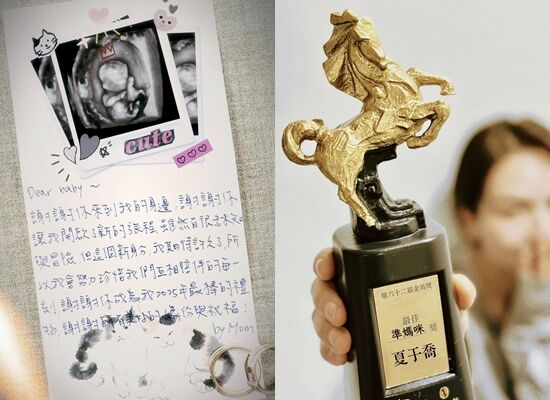 cute
Dear baby~
謝謝你來到我的身邊, 謝謝你
讓我開啟了新的旅程, 雖然有很多未知
與冒險, 但這個新身分, 我期待許久了, 所
以我會努力珍惜我們互相陪伴的每一
刻, 謝謝你成為我2025年最棒的禮
物, 謝謝所有 祝福!
by Mom
第六十二屆金馬獎
最佳
準媽咪 獎
夏于喬